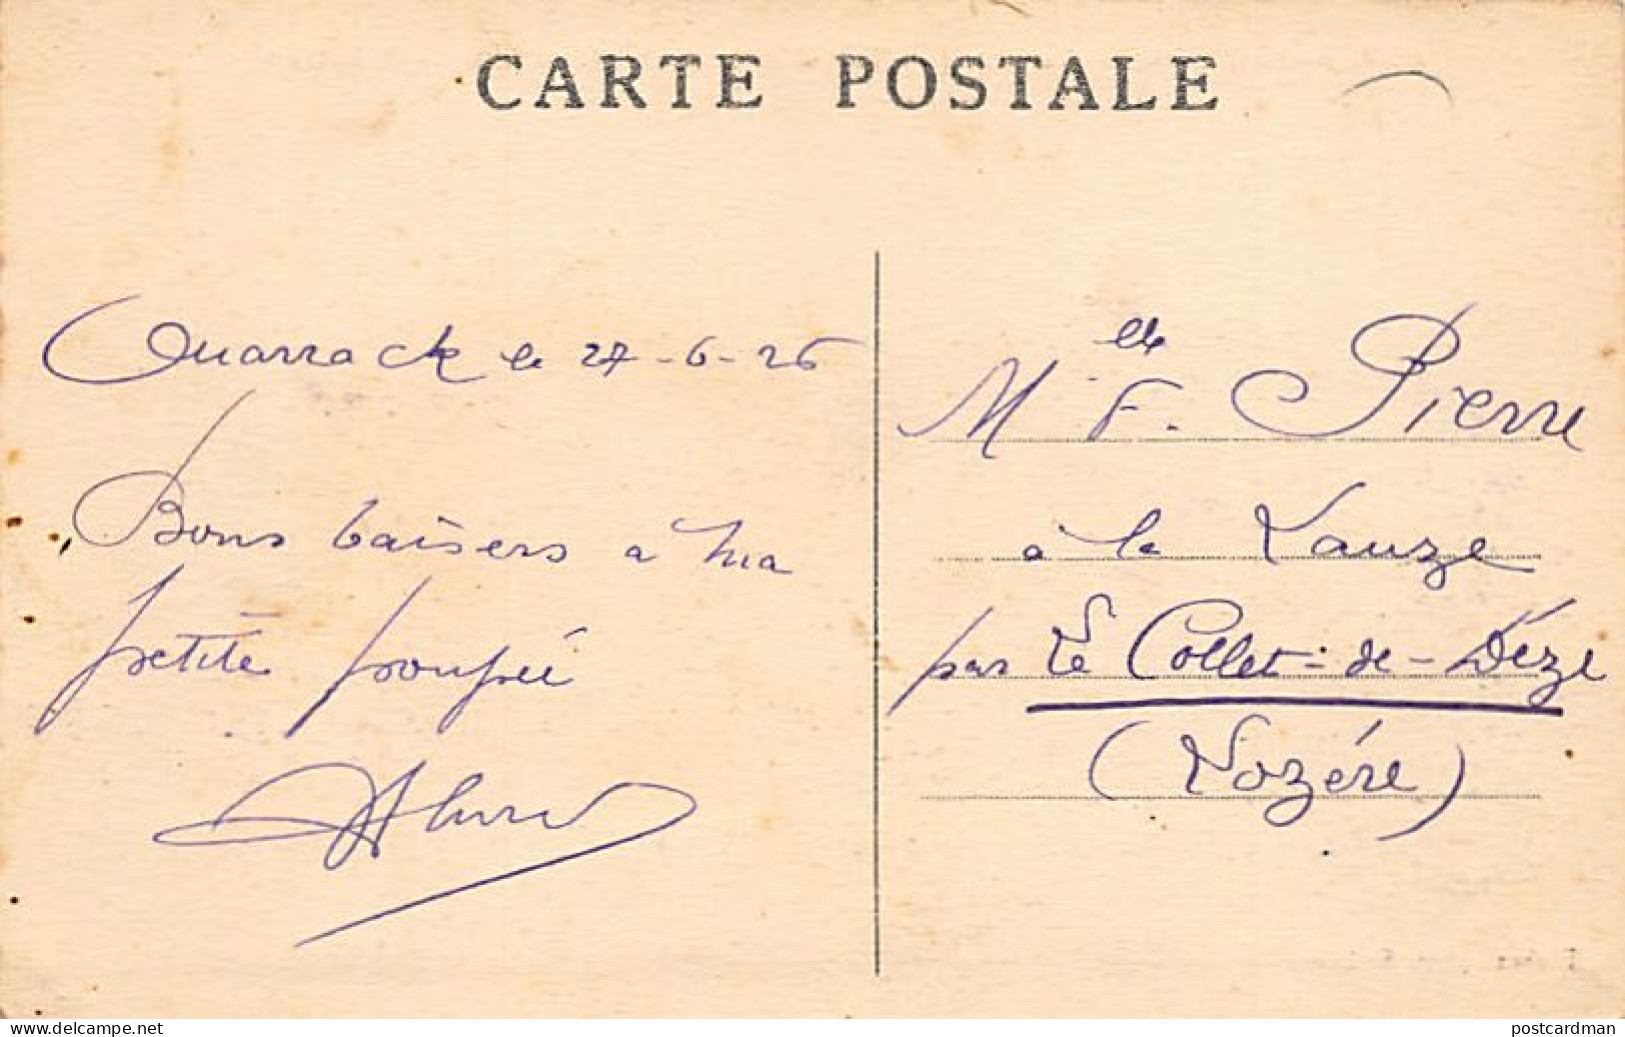 CARTE POSTALE
Ouarrack le 27-6-26
Bons baisers a ma
petite poupée
Mlle F. Pierre
à la Lauze
par le Collet-de-Dèze
(Lozére)
www.delcampe.net
postcardman